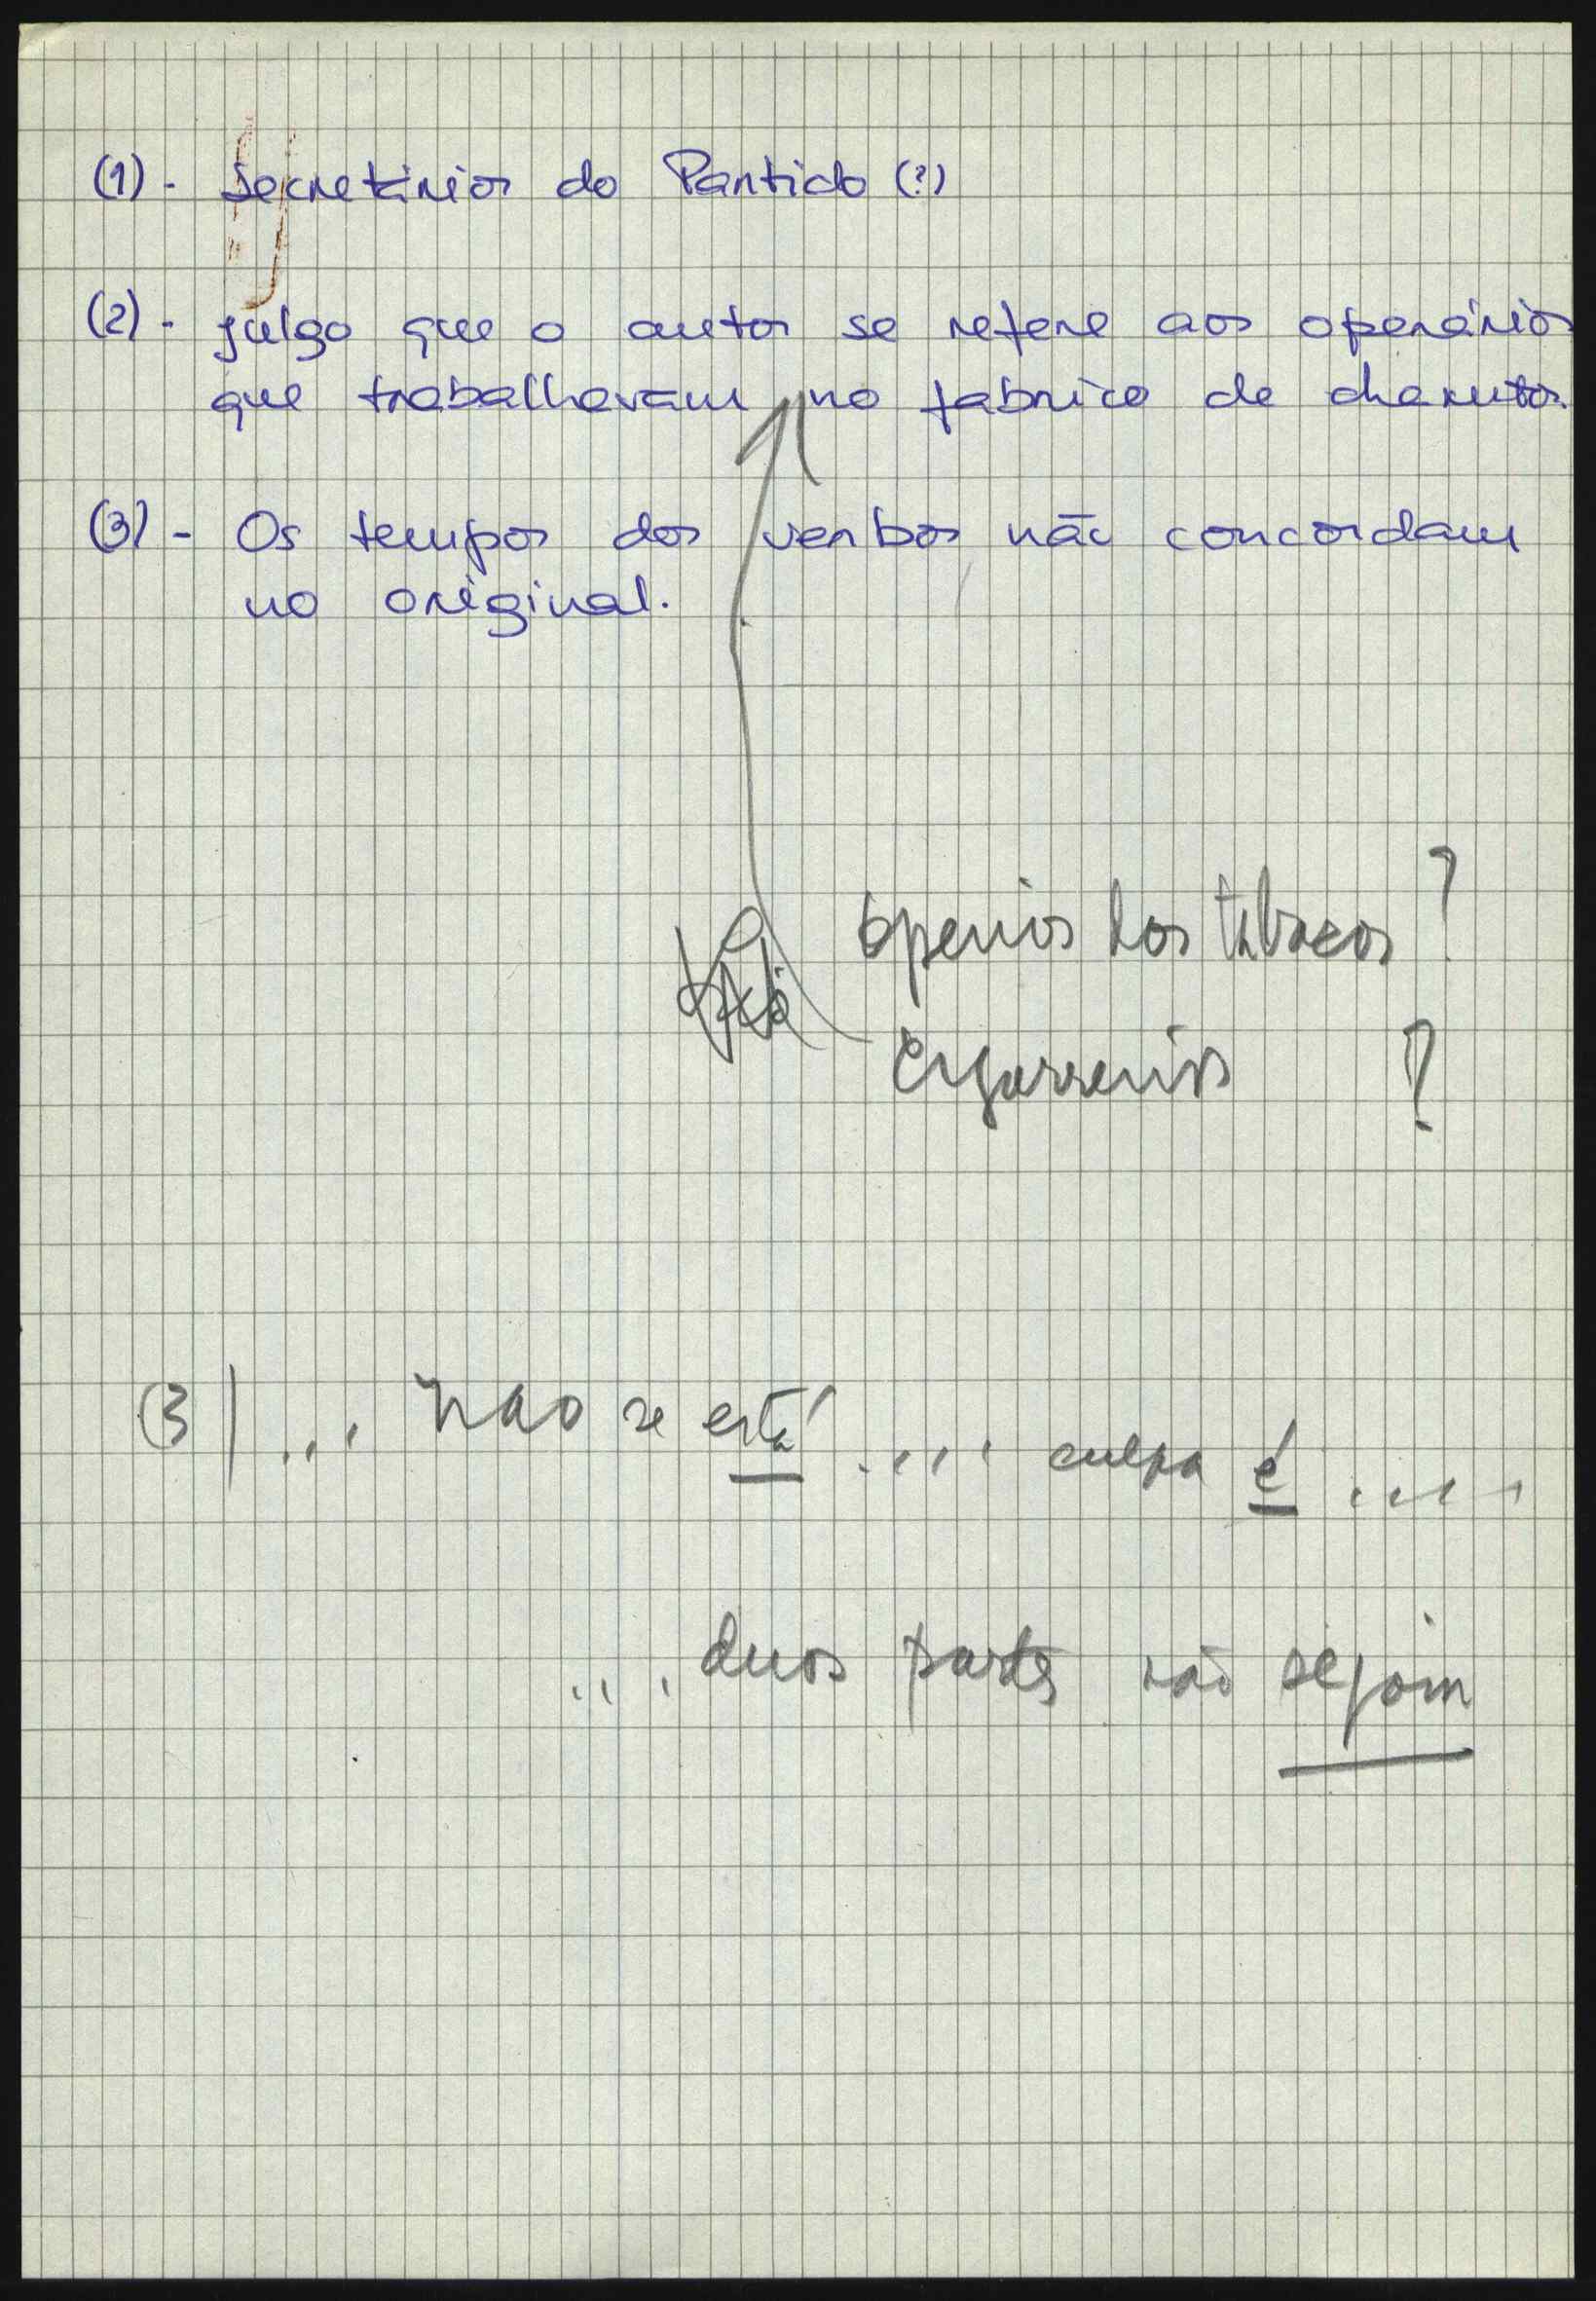 (1) - Secretários do Partido (?)
(2) - julgo que o autor se refere aos operários
que trabalhavam no fabrico de charutos.
(3) - Os tempos dos verbos não concordam
no original.
operários dos tabacos ?
cigarreiros ?
(3) ... não se está .... culpa é .....
... duas partes não sejam